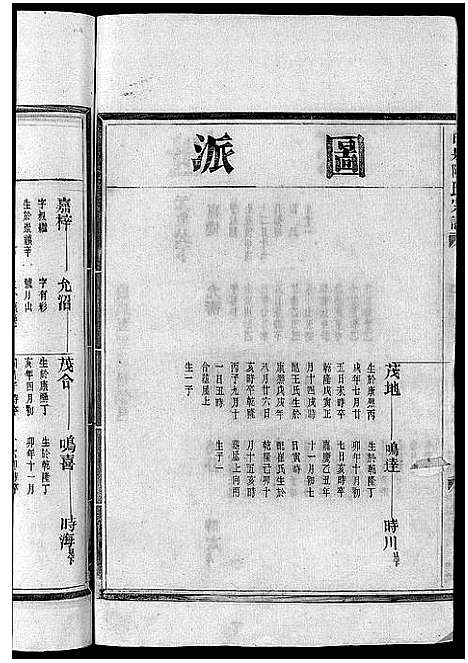 圖派
茂地
生於康熙丙
戌年七月廿
五日未時卒
乾隆戊寅正
月十四戌時
配王氏生於
康熙戊戌年
八月廿六日
亥時卒乾隆
丙子九月十
一日丑時
合墓屋上
生一子
鳴逹
生於乾隆丁
卯年十月初
七日亥時卒
嘉慶乙丑年
十一月初七
日寅時
配崔氏生於
乾隆己卯十
月十五亥時
墓屋上向南
生子一
時川
嘉梓
字叔繼
允沼
字有彩
號月山
茂令
生於康熙丁
亥年四月初
鳴喜
生於乾隆丁
卯年十一月
時海